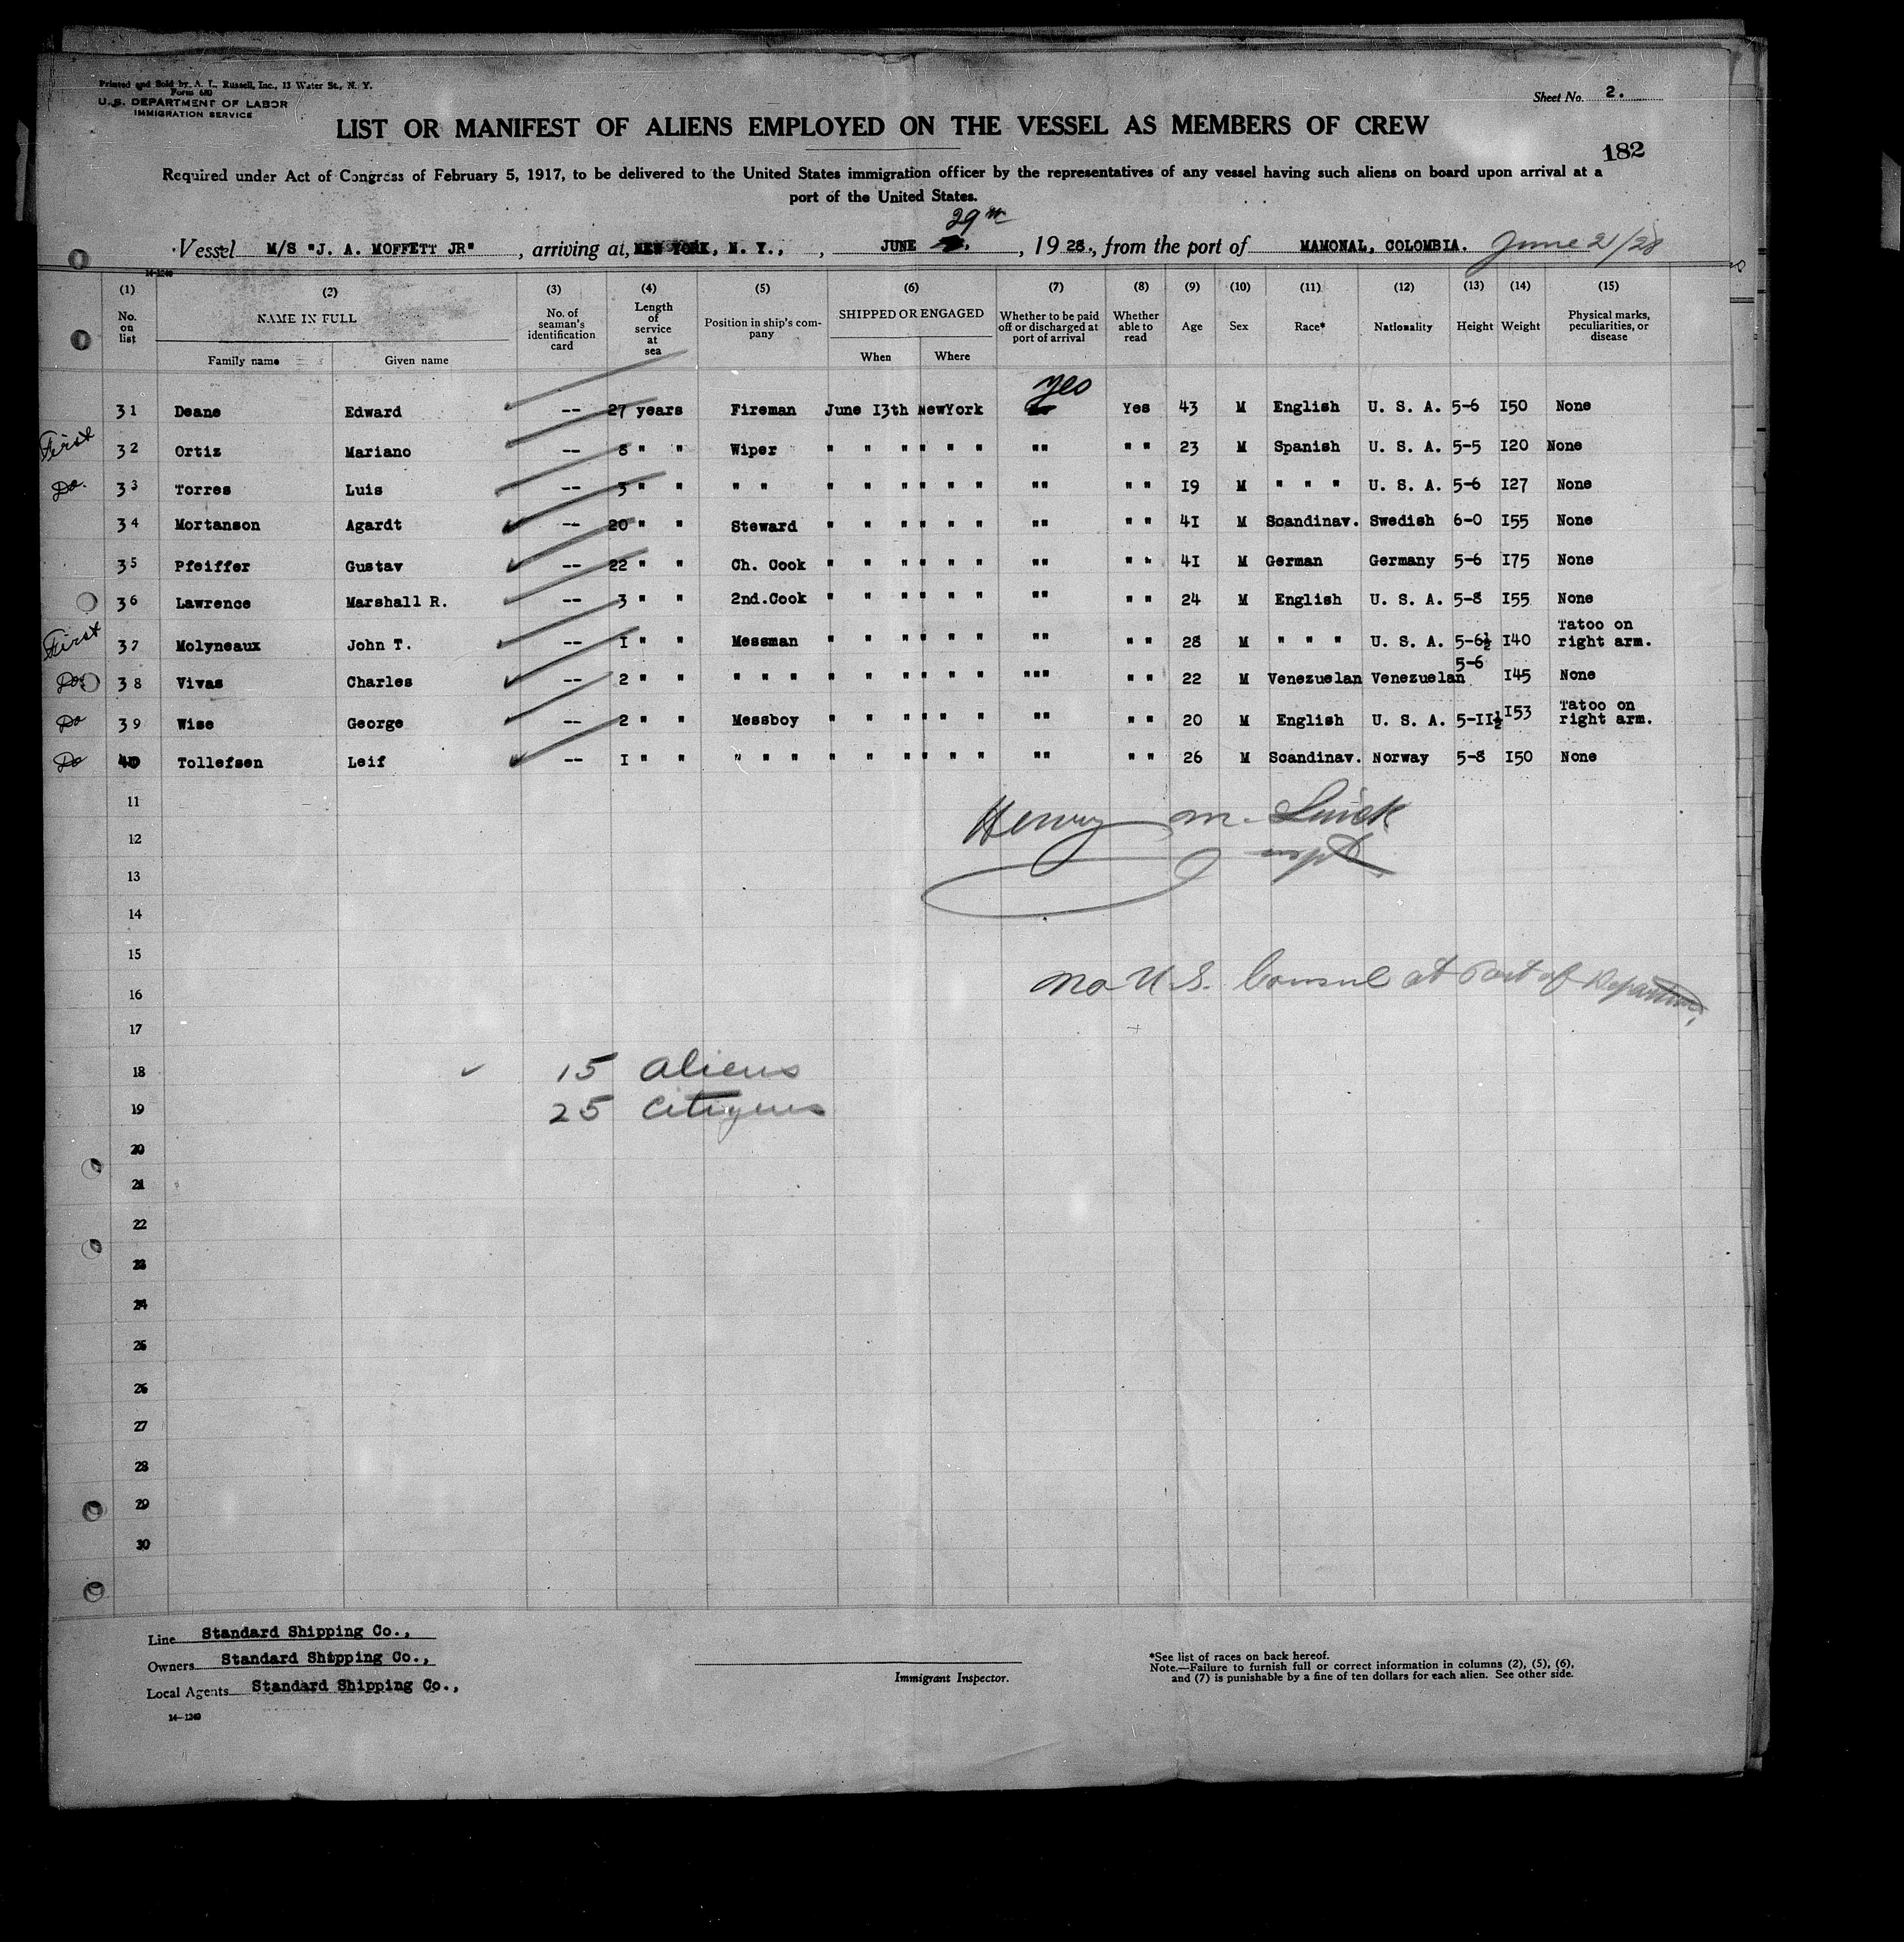 Printed and Sold by A. L. Russell, Inc., 13 Water St., N. Y.
Form 680
U. S. DEPARTMENT OF LABOR
IMMIGRATION SERVICE
Sheet No. 2.
LIST OR MANIFEST OF ALIENS EMPLOYED ON THE VESSEL AS MEMBERS OF CREW
182
Required under Act of Congress of February 5, 1917, to be delivered to the United States immigration officer by the representatives of any vessel having such aliens on board upon arrival at a
port of the United States.
29th
Vessel M/S "J. A. MOFFETT JR" , arriving at, NEW YORK, N. Y., , JUNE , 1928., from the port of MAMONAL, COLOMBIA. June 21/28
14-1240
(1) (2) (3) (4) (5) (6) (7) (8) (9) (10) (11) (12) (13) (14) (15)
No. on list NAME IN FULL No. of seaman's identification card Length of service at sea Position in ship's company SHIPPED OR ENGAGED Whether to be paid off or discharged at port of arrival Whether able to read Age Sex Race* Nationality Height Weight Physical marks, peculiarities, or disease
Family name Given name When Where
yes
31 Deane Edward -- 27 years Fireman June 13th NewYork Yes 43 M English U. S. A. 5-6 150 None
First 32 Ortiz Mariano -- 8 " " Wiper " " " " " " "" " " 23 M Spanish U. S. A. 5-5 120 None
Do. 33 Torres Luis -- 3 " " " " " " " " " " "" " " 19 M " " " U. S. A. 5-6 127 None
34 Mortanson Agardt -- 20 " " Steward " " " " " " "" " " 41 M Scandinav. Swedish 6-0 155 None
35 Pfeiffer Gustav -- 22 " " Ch. Cook " " " " " " "" " " 41 M German Germany 5-6 175 None
36 Lawrence Marshall R. -- 3 " " 2nd.Cook " " " " " " "" " " 24 M English U. S. A. 5-8 155 None
First 37 Molyneaux John T. -- 1 " " Messman " " " " " " "" " " 28 M " " " U. S. A. 5-6½ 140 Tatoo on right arm.
Do. 38 Vivas Charles -- 2 " " " " " " " " " " " """ " " 22 M Venezuelan Venezuelan 5-6 145 None
Do 39 Wise George -- 2 " " Messboy " " " " " " "" " " 20 M English U. S. A. 5-11½ 153 Tatoo on right arm.
Do 40 Tollefsen Leif -- 1 " " " " " " " " " " " "" " " 26 M Scandinav. Norway 5-8 150 None
11
Henry M.
12
inspt
13
14
15
No U.S. Consul at Port of Departure.
16
17
18 15 aliens
19 25 citizens
20
21
22
23
24
25
26
27
28
29
30
Line Standard Shipping Co.,
Owners Standard Shipping Co.,
Local Agents Standard Shipping Co.,
14-1240
Immigrant Inspector.
*See list of races on back hereof.
Note.—Failure to furnish full or correct information in columns (2), (5), (6),
and (7) is punishable by a fine of ten dollars for each alien. See other side.